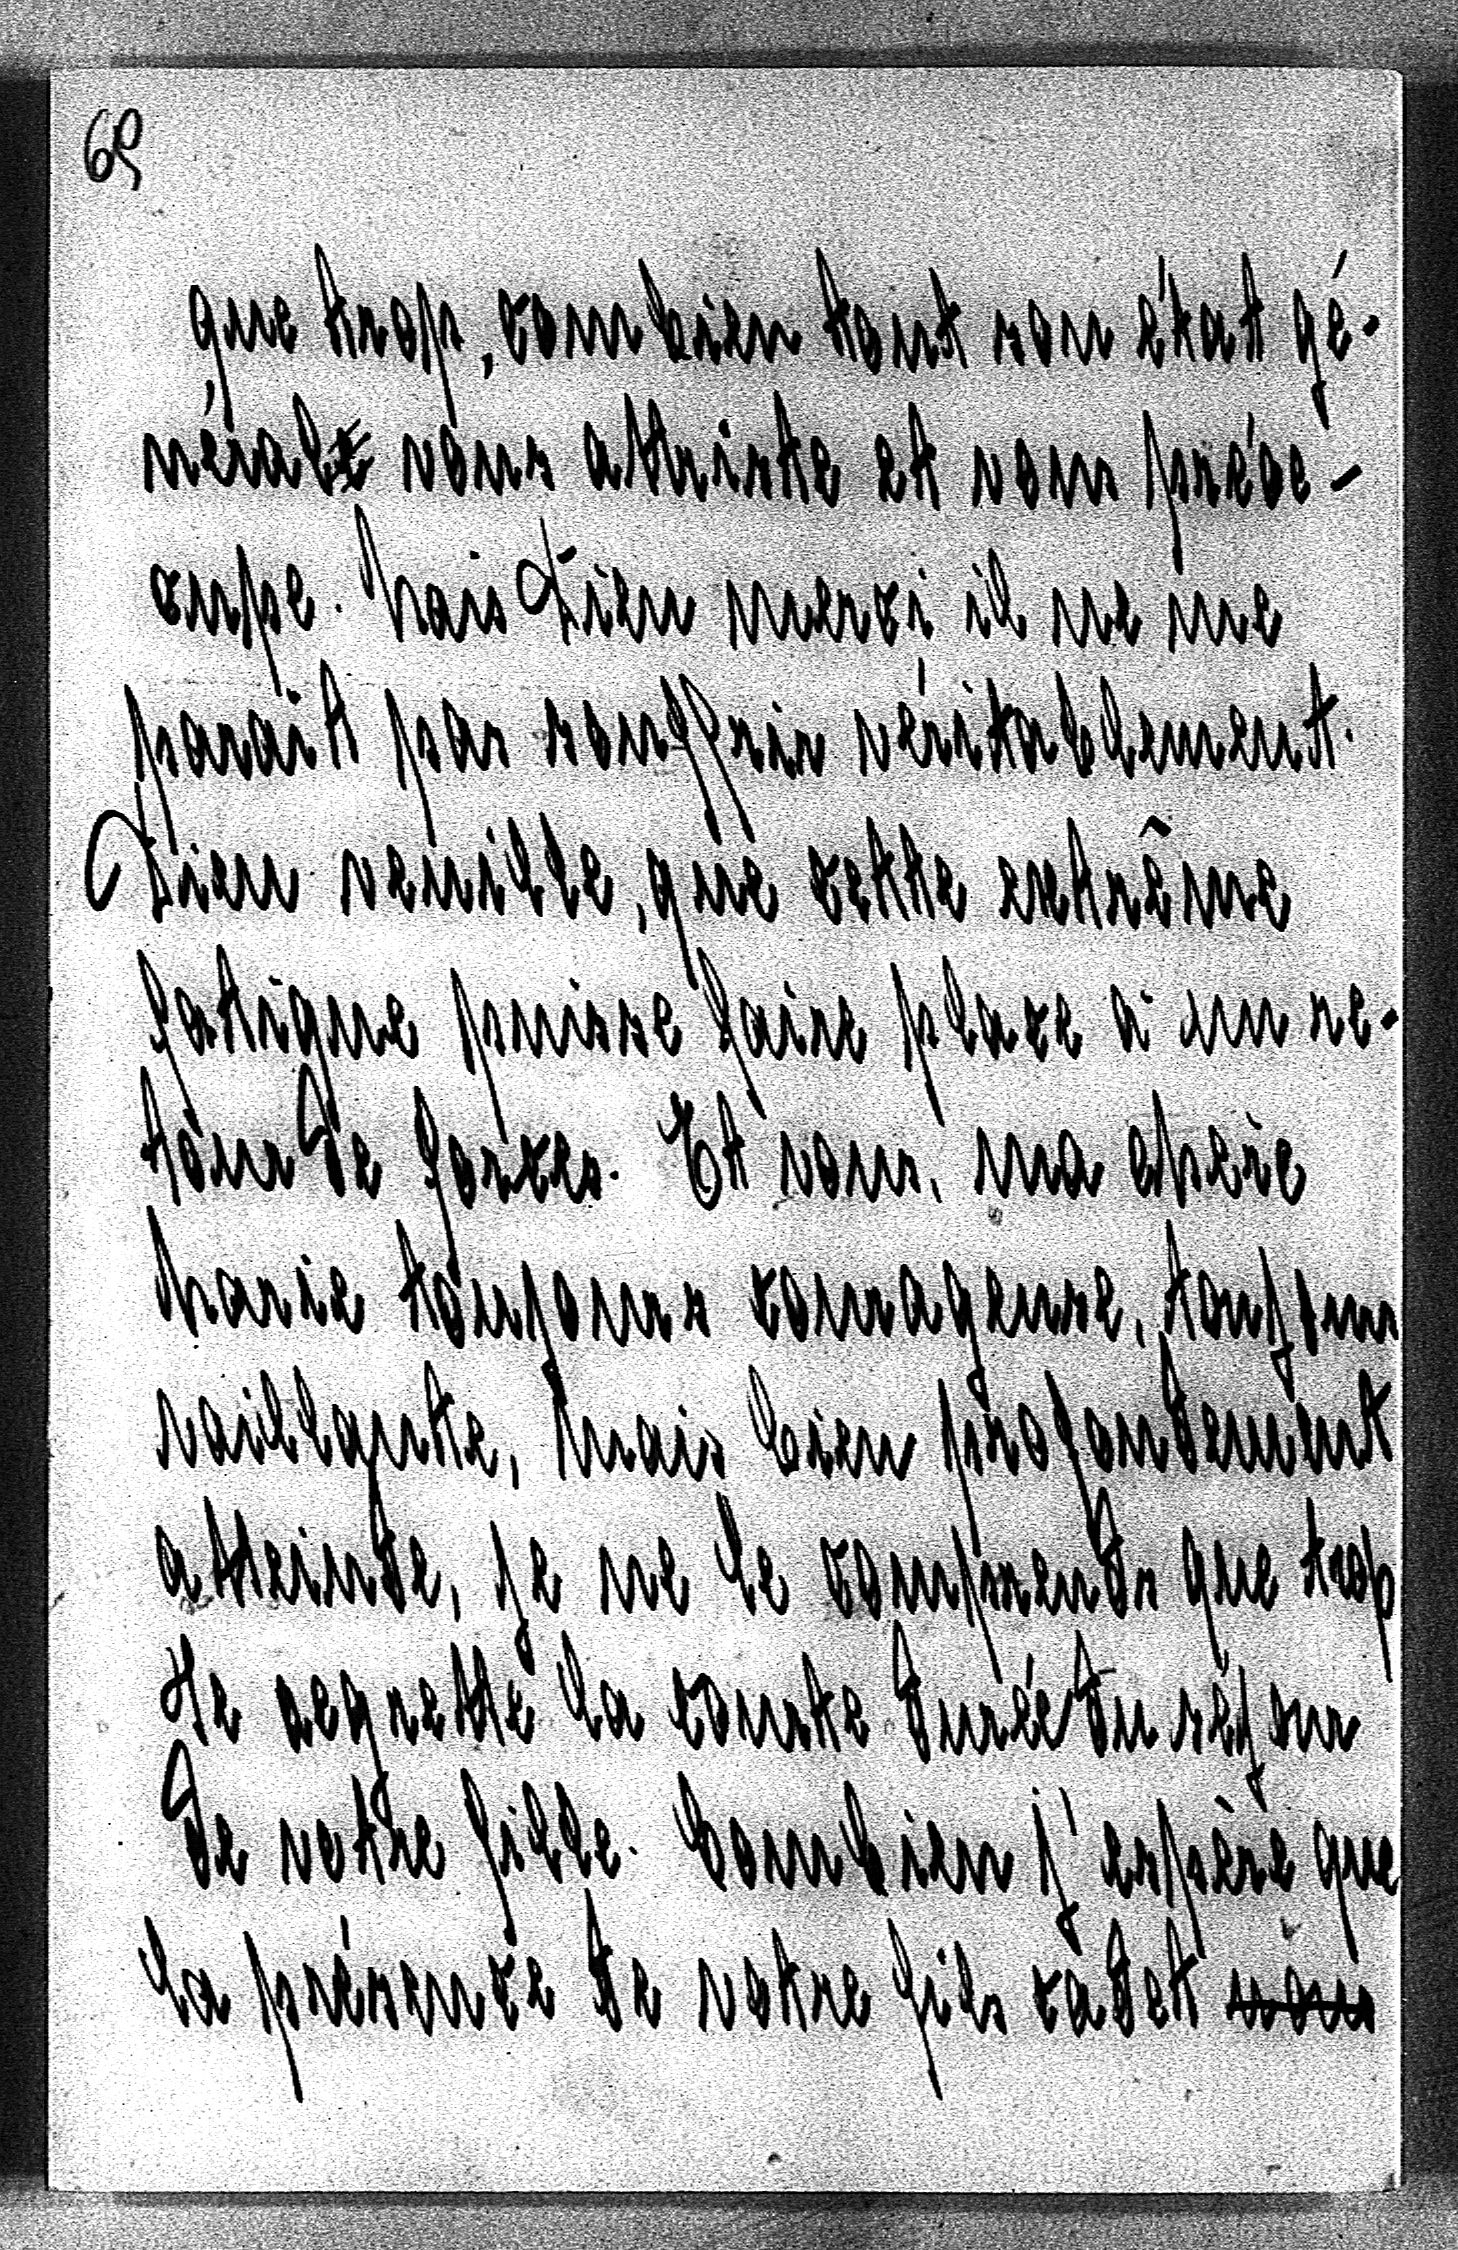 69
que trop, combien tout son état gé-
néral vous attriste et vous préoc-
cupe. Mais Dieu merci il ne me
parait pas souffrir véritablement.
Dieu veuille, que cette extrême
fatigue puisse faire place à un re-
tour de forces. Et vous, ma chère
Marie toujours courageuse, toujours
vaillante, mais bien profondement
attristée, je ne le comprends que trop
et regrette la courte durée du séjour
de votre fille. Combien j'espère que
la présence de votre fils cadet vous